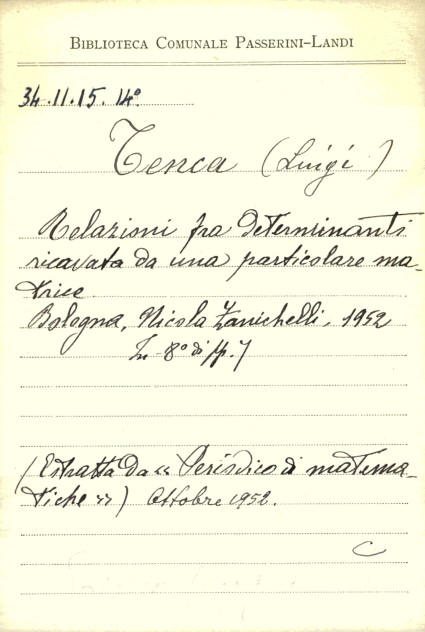 BIBLIOTECA COMUNALE PASSERINI-LANDI
34.11.15.14º
Tenca (Luigi)
Relazioni fra determinanti
ricavata da una particolare ma-
trice
Bologna, Nicola Zanichelli, 1952
In-8º di pp. 7
(Estratta da « Periodico di matema-
tiche ») Ottobre 1952.
C